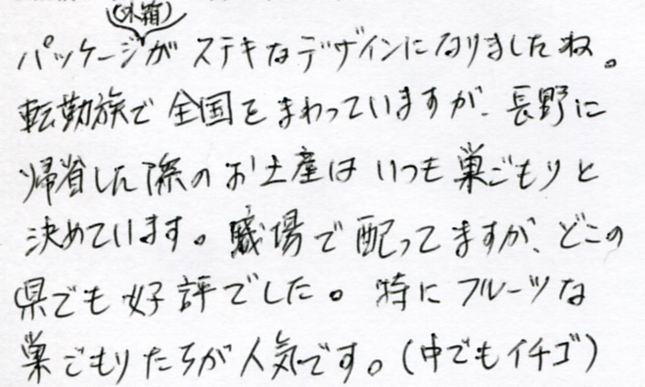 パッケージ(外箱)がステキなデザインになりましたね。
転勤族で全国をまわっていますが、長野に
帰省した際のお土産はいつも巣ごもりと
決めています。職場で配ってますが、どこの
県でも好評でした。特にフルーツな
巣ごもりたちが人気です。(中でもイチゴ)